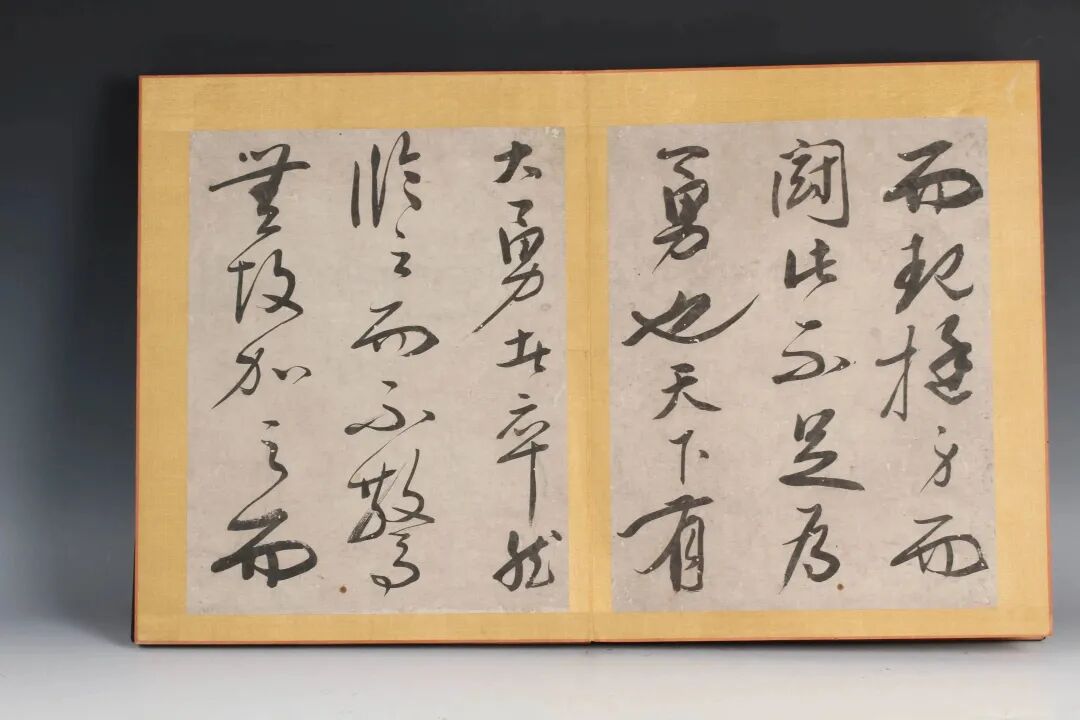 而起挺身而
鬪此不足為
勇也天下有
大勇者卒然
臨之而不驚
無故加之而